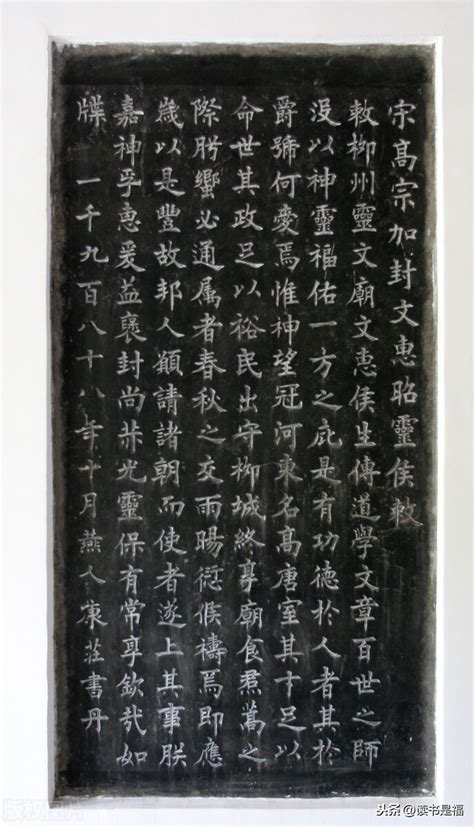 宋高宗加封文惠昭靈侯敕
敕柳州靈文廟文惠侯生傳道學文章百世之師
没以神靈福佑一方之庇是有功德於人者其於
爵號何愛焉惟神望冠河東名高唐室其才足以
命世其政足以裕民出守柳城終享廟食焄蒿之
際肸蠁必通属者春秋之交雨暘愆候禱焉即應
歲以是豐故邦人顓請諸朝而使者遂上其事朕
嘉神孚惠爰益褒封尚光靈保有常享欽哉如
牒 一千九百八十八年十月燕人康莊書丹
版权图片
头条@读书是福